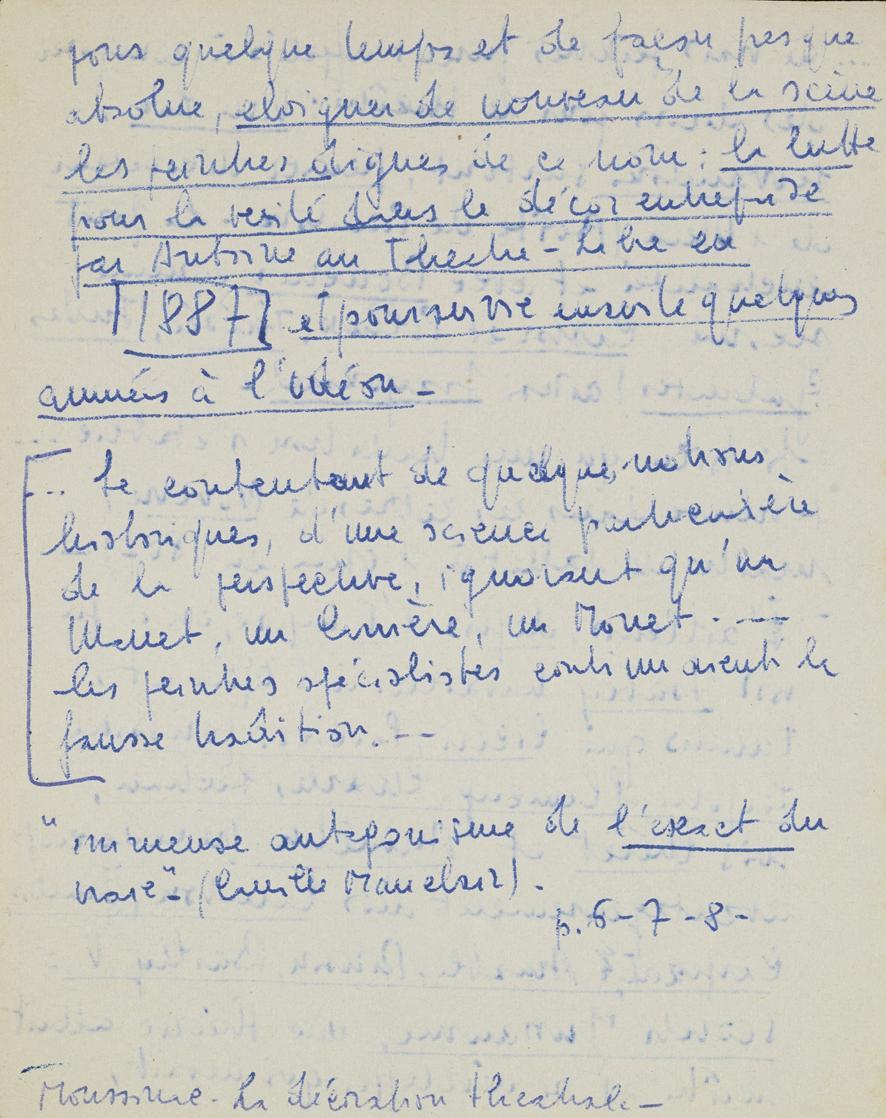 pour quelque temps et de façon presque
absolue, eloigner de nouveau de la scène
les peintres dignes de ce nom : la lutte
pour la vérité dans le décor entreprise
par Antoine au Theatre-Libre en
[1887] et poursuivie ensuite quelques
années à l'Odéon -
... Se contentant de quelques notions
historiques, d'une science particulière
de la perspective, ignorant qu'un
Manet, un Carrière, un Monet . --
les peintres spécialistes continuaient la
fausse tradition. --
"immense antagonisme de l'exact du
vrai" - (Camille Mauclair).
p. 6 - 7 - 8 -
Moussinac - La décoration theatrale -